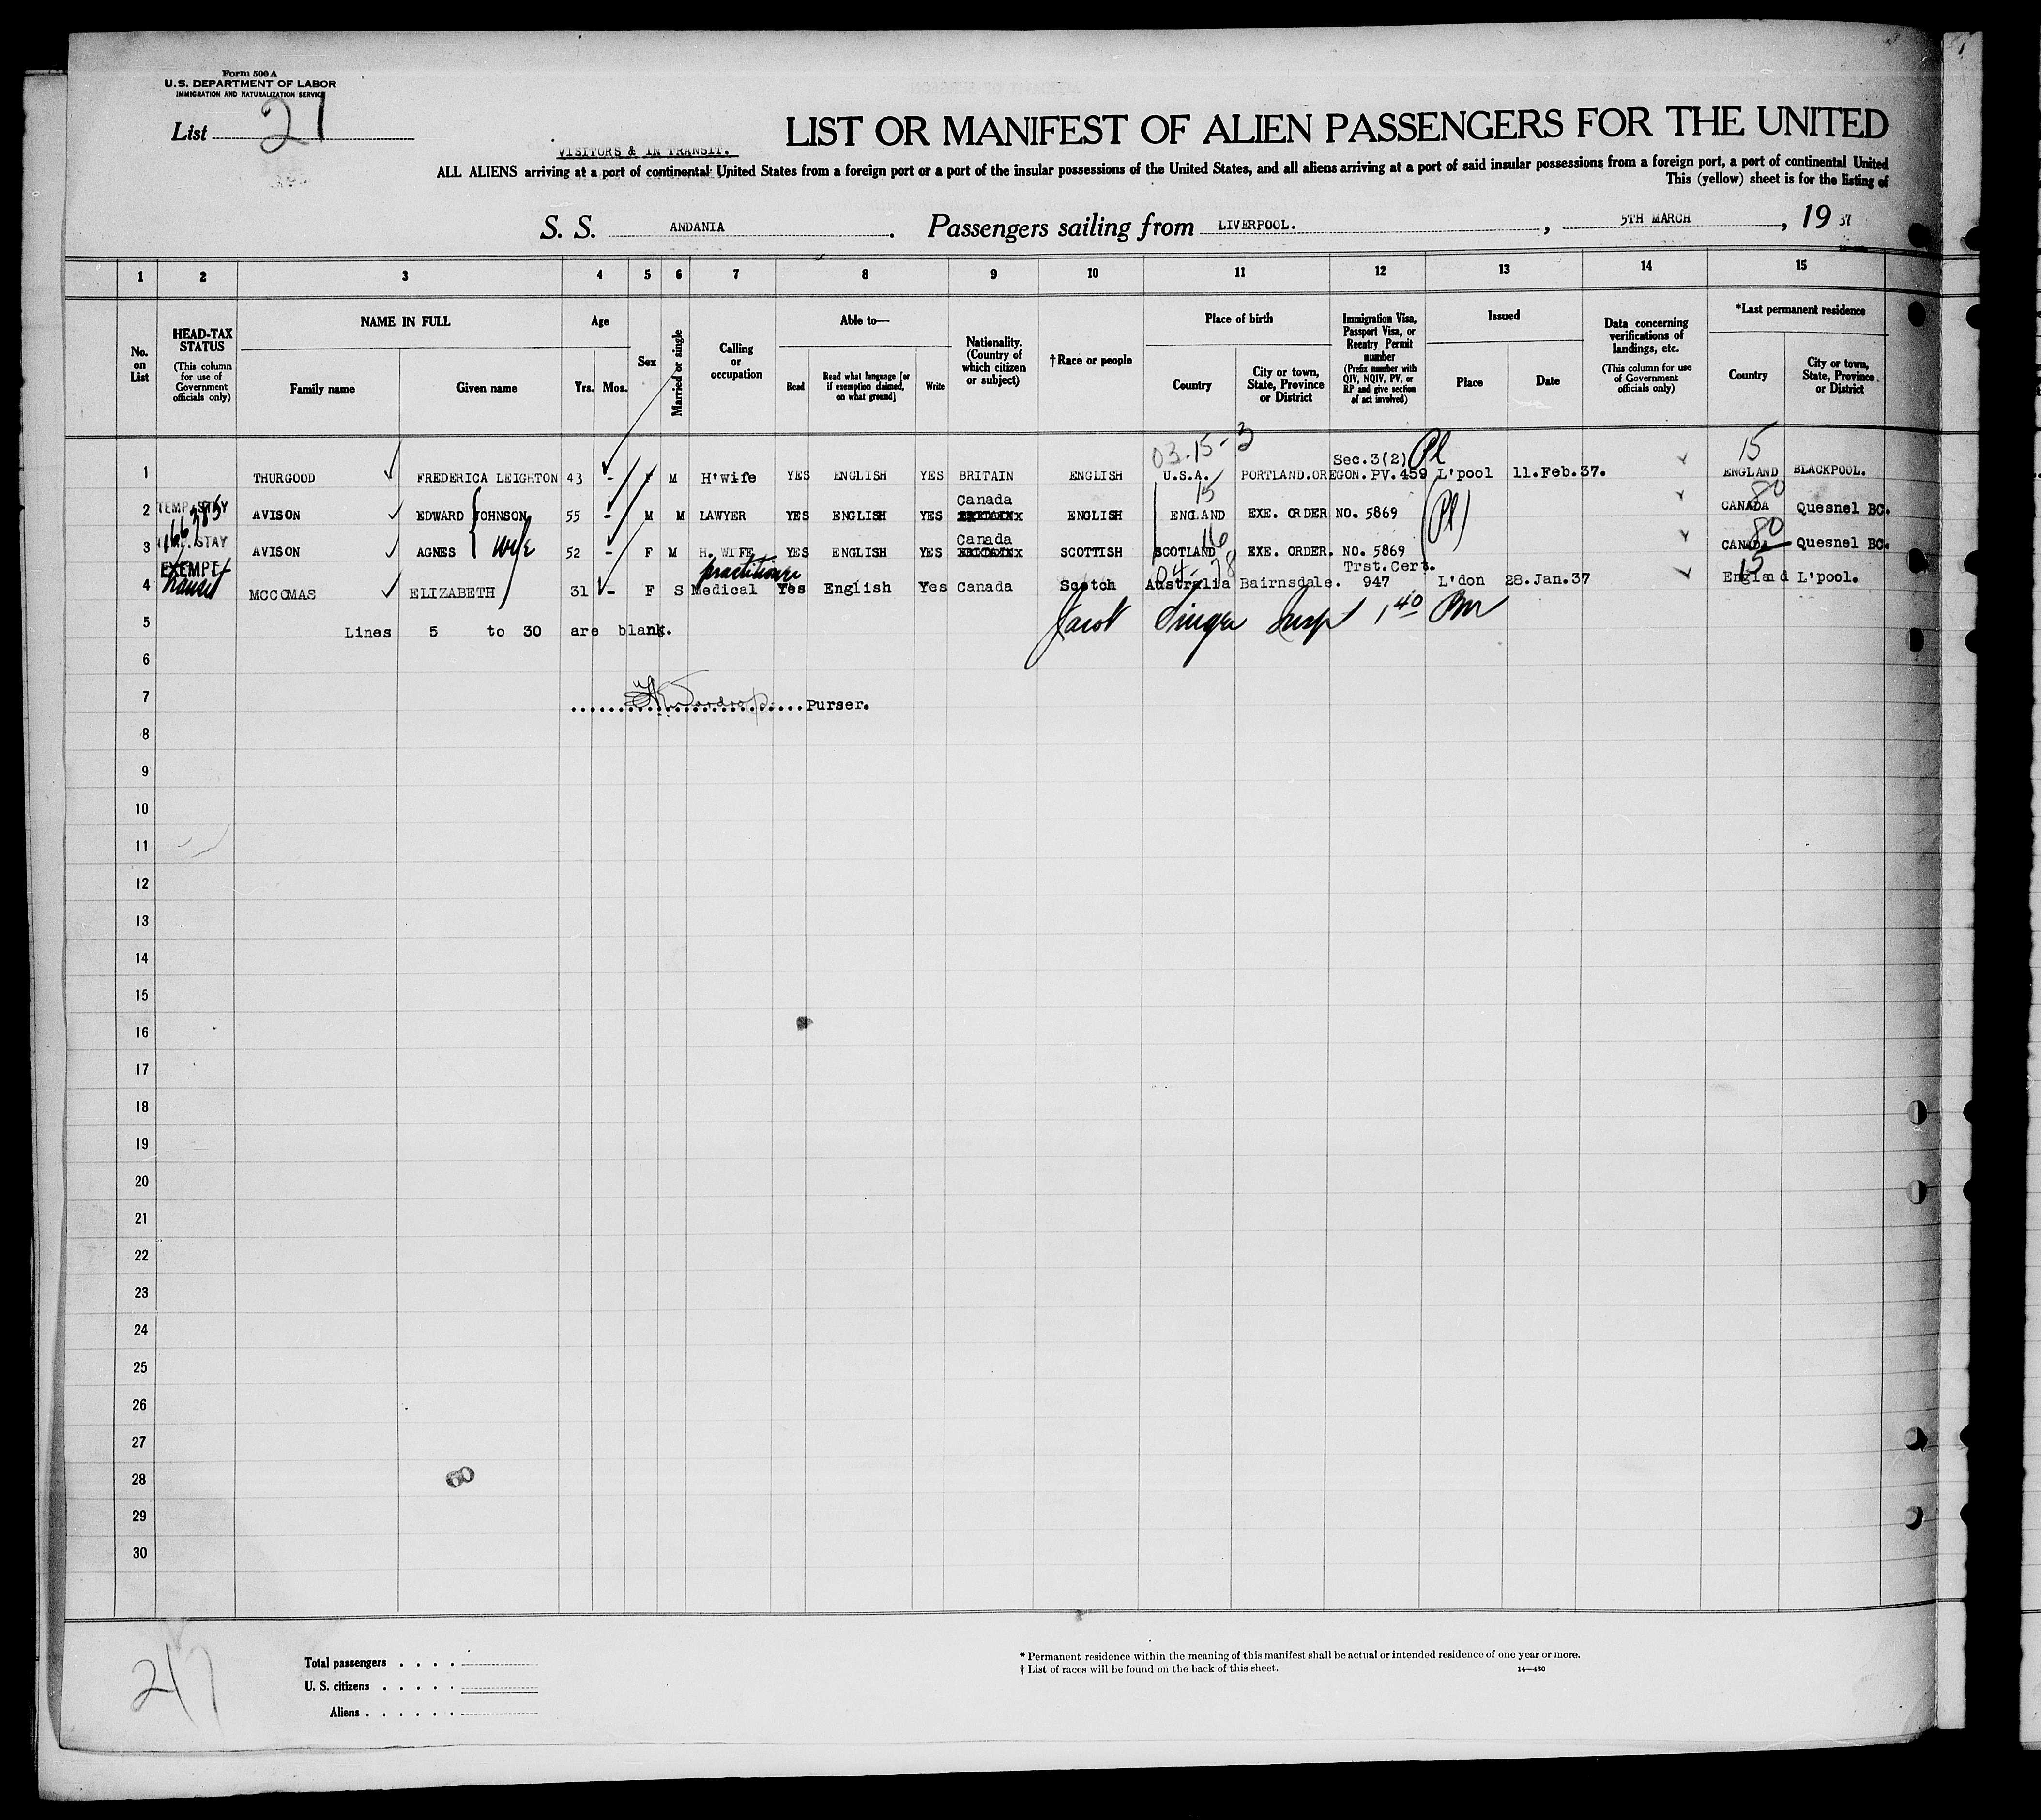 Form 500 A
U.S. DEPARTMENT OF LABOR
IMMIGRATION AND NATURALIZATION SERVICE
List 21
LIST OR MANIFEST OF ALIEN PASSENGERS FOR THE UNITED
VISITORS & IN TRANSIT.
ALL ALIENS arriving at a port of continental United States from a foreign port or a port of the insular possessions of the United States, and all aliens arriving at a port of said insular possessions from a foreign port, a port of continental United
This (yellow) sheet is for the listing of
S. S. ANDANIA. Passengers sailing from LIVERPOOL. , 5TH MARCH , 19 37
1 2 3 4 5 6 7 8 9 10 11 12 13 14 15
No. on List
HEAD-TAX STATUS (This column for use of Government officials only)
NAME IN FULL
Family name Given name
Age
Yrs. Mos.
Sex
Married or single
Calling or occupation
Able to—
Read Read what language [or if exemption claimed, on what ground] Write
Nationality. (Country of which citizen or subject)
†Race or people
Place of birth
Country City or town, State, Province or District
Immigration Visa, Passport Visa, or Reentry Permit number (Prefix number with QIV, NQIV, PV, or RP and give section of act involved)
Issued
Place Date
Data concerning verifications of landings, etc. (This column for use of Government officials only)
*Last permanent residence
Country City or town, State, Province or District
03-15-3 Sec.3(2) Pl 15
1 THURGOOD FREDERICA LEIGHTON 43 - F M H'wife YES ENGLISH YES BRITAIN ENGLISH U.S.A. PORTLAND.OREGON. PV. 459 L'pool 11.Feb.37. ENGLAND BLACKPOOL.
TEMP. STAY Canada 15 80
2 AVISON EDWARD JOHNSON 55 - M M LAWYER YES ENGLISH YES ENGLISH ENGLAND EXE. ORDER NO. 5869 (Pl) CANADA Quesnel BC.
166385 STAY wife Canada 16 80
3 AVISON AGNES 52 - F M H. WIFE YES ENGLISH YES SCOTTISH SCOTLAND EXE. ORDER. NO. 5869 CANADA Quesnel BC.
EXEMPT practitioner 04-78 Trst.Cert. 15
4 transit MCCOMAS ELIZABETH 31 - F S Medical Yes English Yes Canada Scotch Australia Bairnsdale. 947 L'don 28.Jan.37 England L'pool.
5 Lines 5 to 30 are blank. Jacob Singer Insp 1 40 Pm
6
7 Purser.
8
9
10
11
12
13
14
15
16
17
18
19
20
21
22
23
24
25
26
27
28 60
29
30
217
Total passengers
U. S. citizens
Aliens
* Permanent residence within the meaning of this manifest shall be actual or intended residence of one year or more.
† List of races will be found on the back of this sheet. 14—430